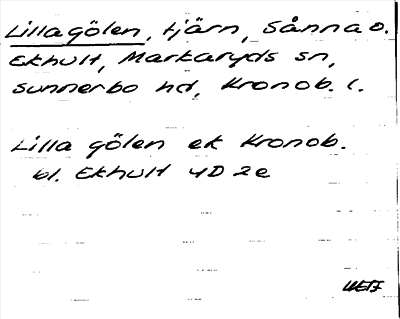 Lilla gölen, tjärn, Sånna o.
Ekhult, Markaryds sn,
Sunnerbo hd, Kronob. l.
Lilla gölen ek Kronob.
bl. Ekhult 4D 2e